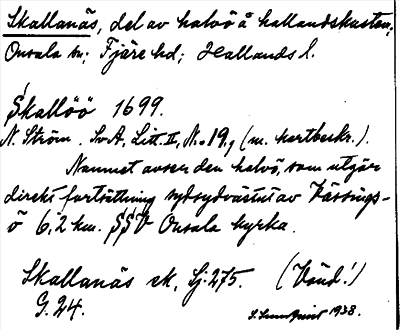 Skallanäs, del av halvö å hallandskusten;
Onsala sn; Fjäre hd; Hallands l.
Skallöö 1699.
N. Ström. SvA, Litt. II, N:o 19, (m. kartbeskr.).
Namnet avser den halvö, som utgör
direkt fortsättning sydsydvästut av Vässings-
ö 6,2 km. SSV Onsala kyrka.
Skallanäs ek, Sj. 275. (Vänd!)
G. 24.
1938.